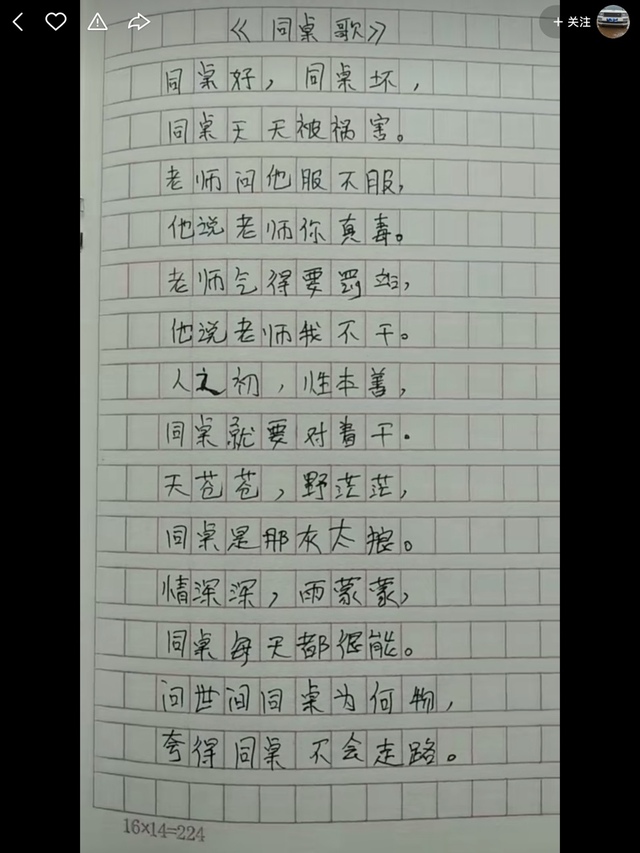 + 关注
《同桌歌》
同桌好，同桌坏，
同桌天天被祸害。
老师问他服不服，
他说老师你真毒。
老师气得要罚站，
他说老师我不干。
人之初，性本善，
同桌就要对着干。
天苍苍，野茫茫，
同桌是那灰太狼。
情深深，雨蒙蒙，
同桌每天都很能。
问世间同桌为何物，
夸得同桌不会走路。
16×14=224